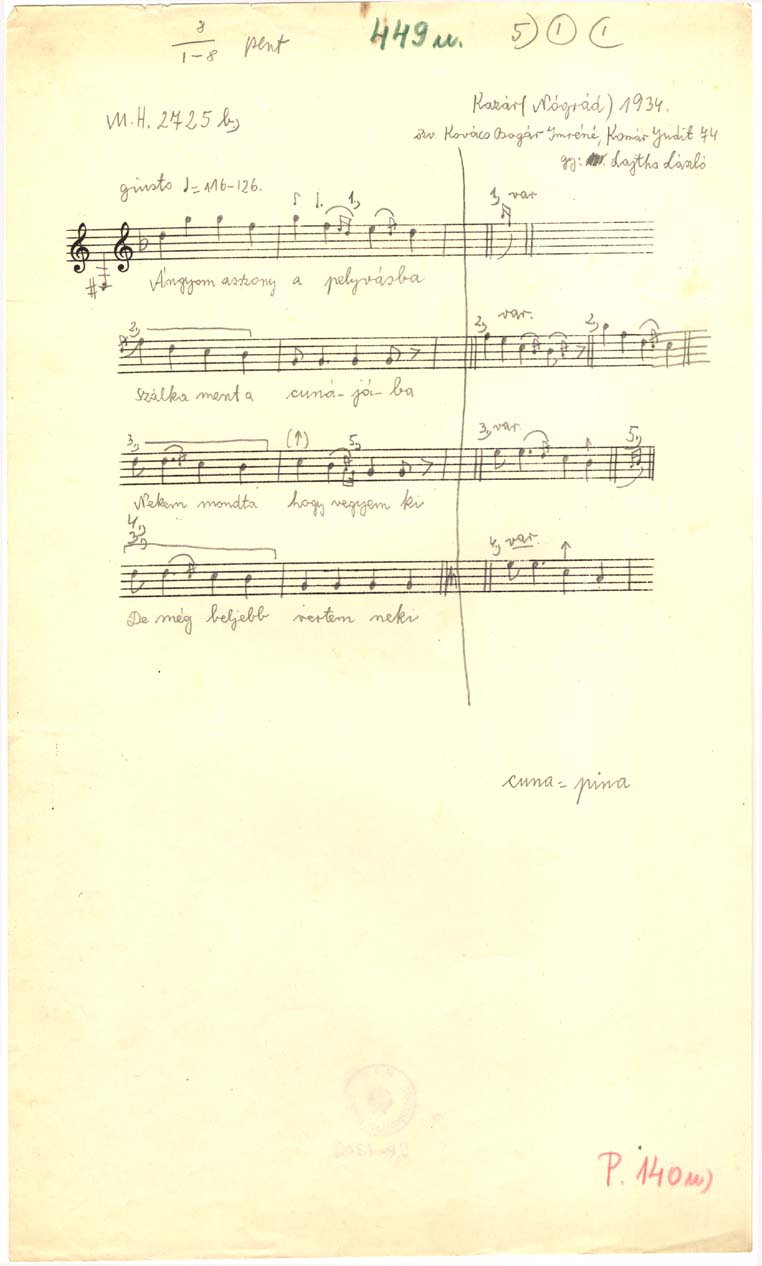 8
1-8 pent 449 u. 5) 1 1
M. H. 2725 b)
Kazár (Nógrád) 1934.
özv. Kovács Bogár Imréné, Komár Judit 74
gy: Lajtha László
giusto ♩= 116-126.
1) 1) var
Ángyom asszony a pelyvásba
2) 2) var. 2)
Szálka ment a cuná-já-ba
3) (↑) 5) 3) var. 5)
Nekem mondta hogy vegyem ki
4)
4) var.
De még beljebb vertem neki
cuna = pina
P. 140 u)